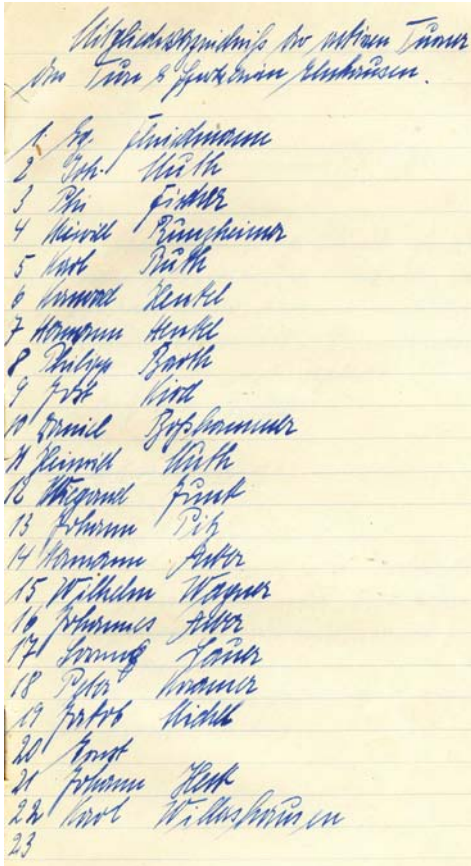 Mitgliedsverzeichniß der aktiven Turner
des Turn &
1. Schiedmann
2 Joh. Muth
3 Phi Fischer
4 Heinrich Rungheimer
5 Karl Ruth
6 Konrad Henkel
7 Hermann Henkel
8 Philipp Barth
9 Jost
10 Daniel Boßhammer
11 Heinrich Muth
12 Wiegand Funk
13 Johann Pitz
14 Hermann
15 Wilhelm Wagner
16 Johannes
17 Sauer
18 Peter Kramer
19 Jakob Michel
20 Ernst
21 Johann Heck
22 Karl Willershausen
23